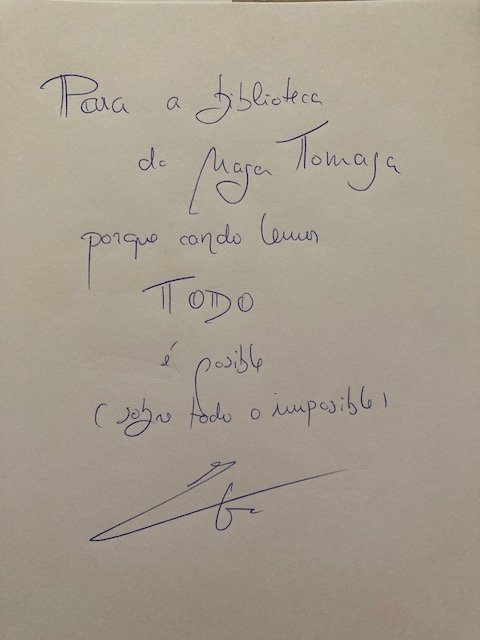 Para a biblioteca
da Maga Tomasa
porque cando lemos
TODO
é posible
(sobre todo o imposible)